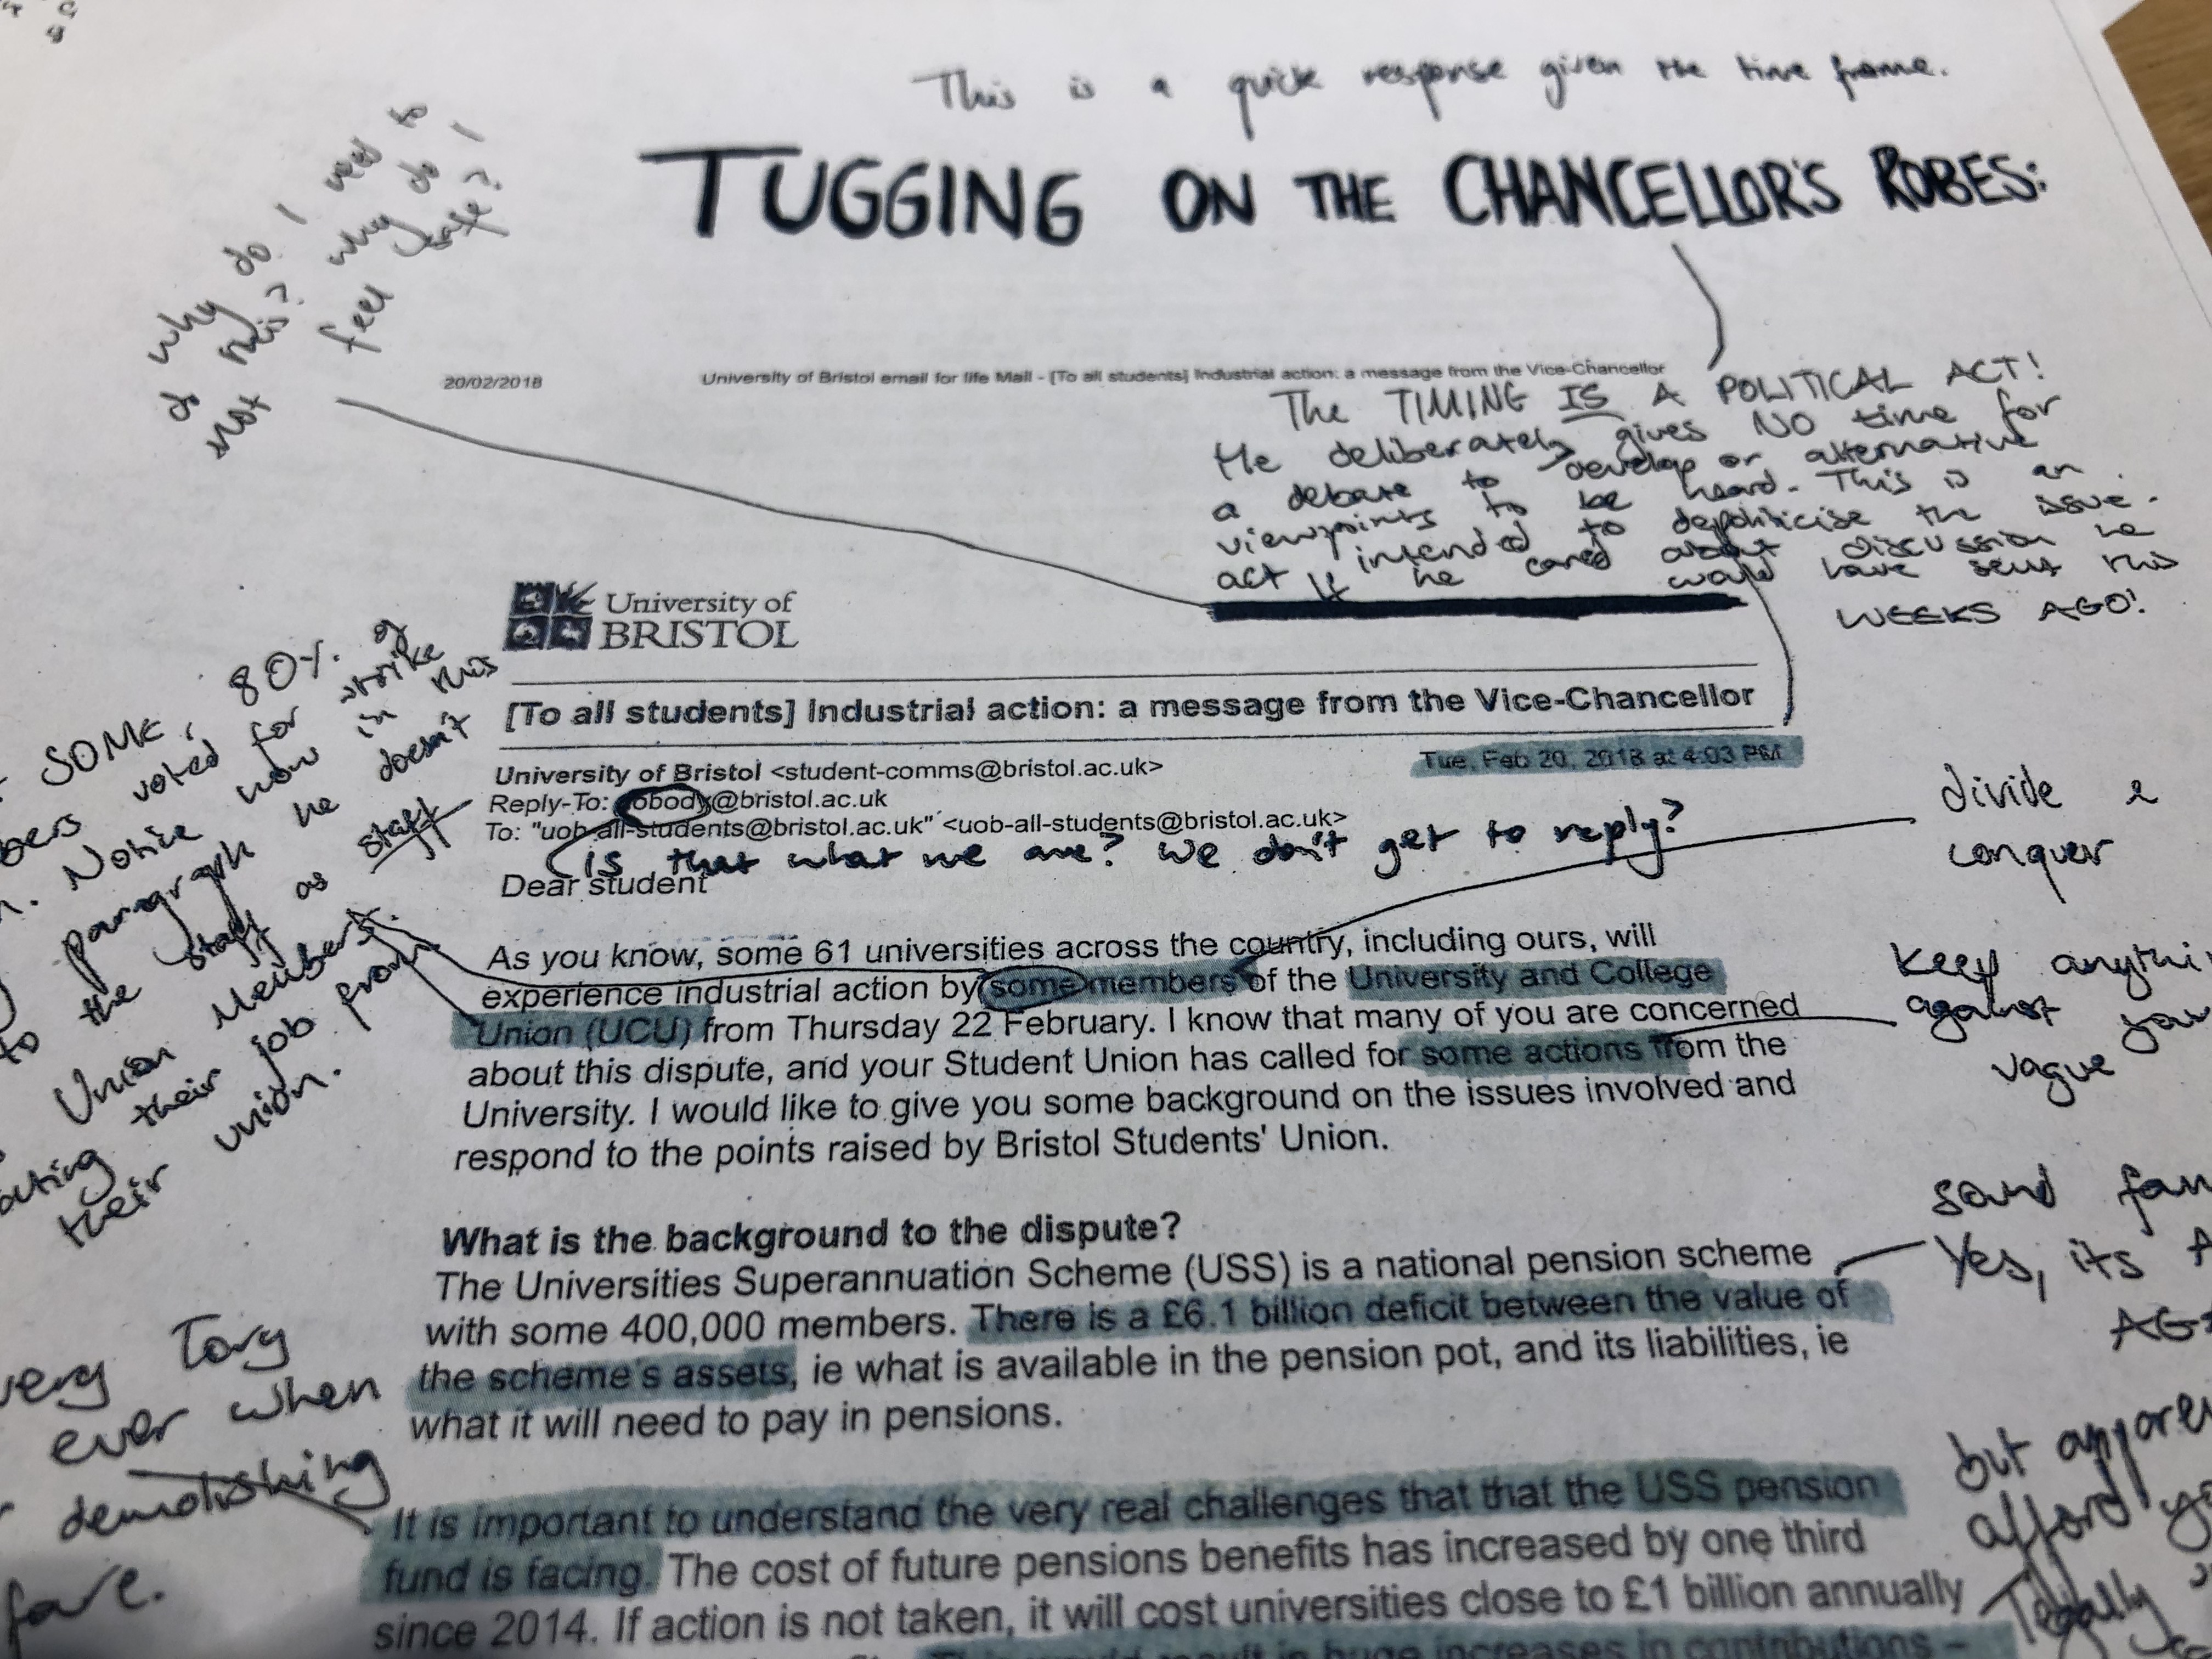 This is a quick response given the time frame.
TUGGING ON THE CHANCELLOR'S ROBES:
why do I need to
do this? why do I
not feel safe?
20/02/2018
University of Bristol email for life Mail - [To all students] Industrial action: a message from the Vice-Chancellor
The TIMING IS A POLITICAL ACT!
He deliberately gives NO time for
a debate to develop or alternative
viewpoints to be heard. This is an
act intended to depoliticise the issue.
If he cared about discussion he
would have sent this
WEEKS AGO!
University of
BRISTOL
[To all students] Industrial action: a message from the Vice-Chancellor
Tue, Feb 20, 2018 at 4:03 PM
University of Bristol <student-comms@bristol.ac.uk>
Reply-To: nobody@bristol.ac.uk
To: "uob-all-students@bristol.ac.uk" <uob-all-students@bristol.ac.uk>
Is that what we are? We don't get to reply?
Dear student
As you know, some 61 universities across the country, including ours, will
experience industrial action by some members of the University and College
Union (UCU) from Thursday 22 February. I know that many of you are concerned
about this dispute, and your Student Union has called for some actions from the
University. I would like to give you some background on the issues involved and
respond to the points raised by Bristol Students' Union.
What is the background to the dispute?
The Universities Superannuation Scheme (USS) is a national pension scheme
with some 400,000 members. There is a £6.1 billion deficit between the value of
the scheme's assets, ie what is available in the pension pot, and its liabilities, ie
what it will need to pay in pensions.
It is important to understand the very real challenges that that the USS pension
fund is facing. The cost of future pensions benefits has increased by one third
since 2014. If action is not taken, it will cost universities close to £1 billion annually
huge increases in contributions –
SOME, 80% of
voted for strike
Notice how in this
paragraph he doesn't
to the staff as staff
Union Members.
their job from
their union.
Tory
ever when
demolishing
divide &
conquer
keep
against
vague
sound
Yes, its
but
afford
Totally